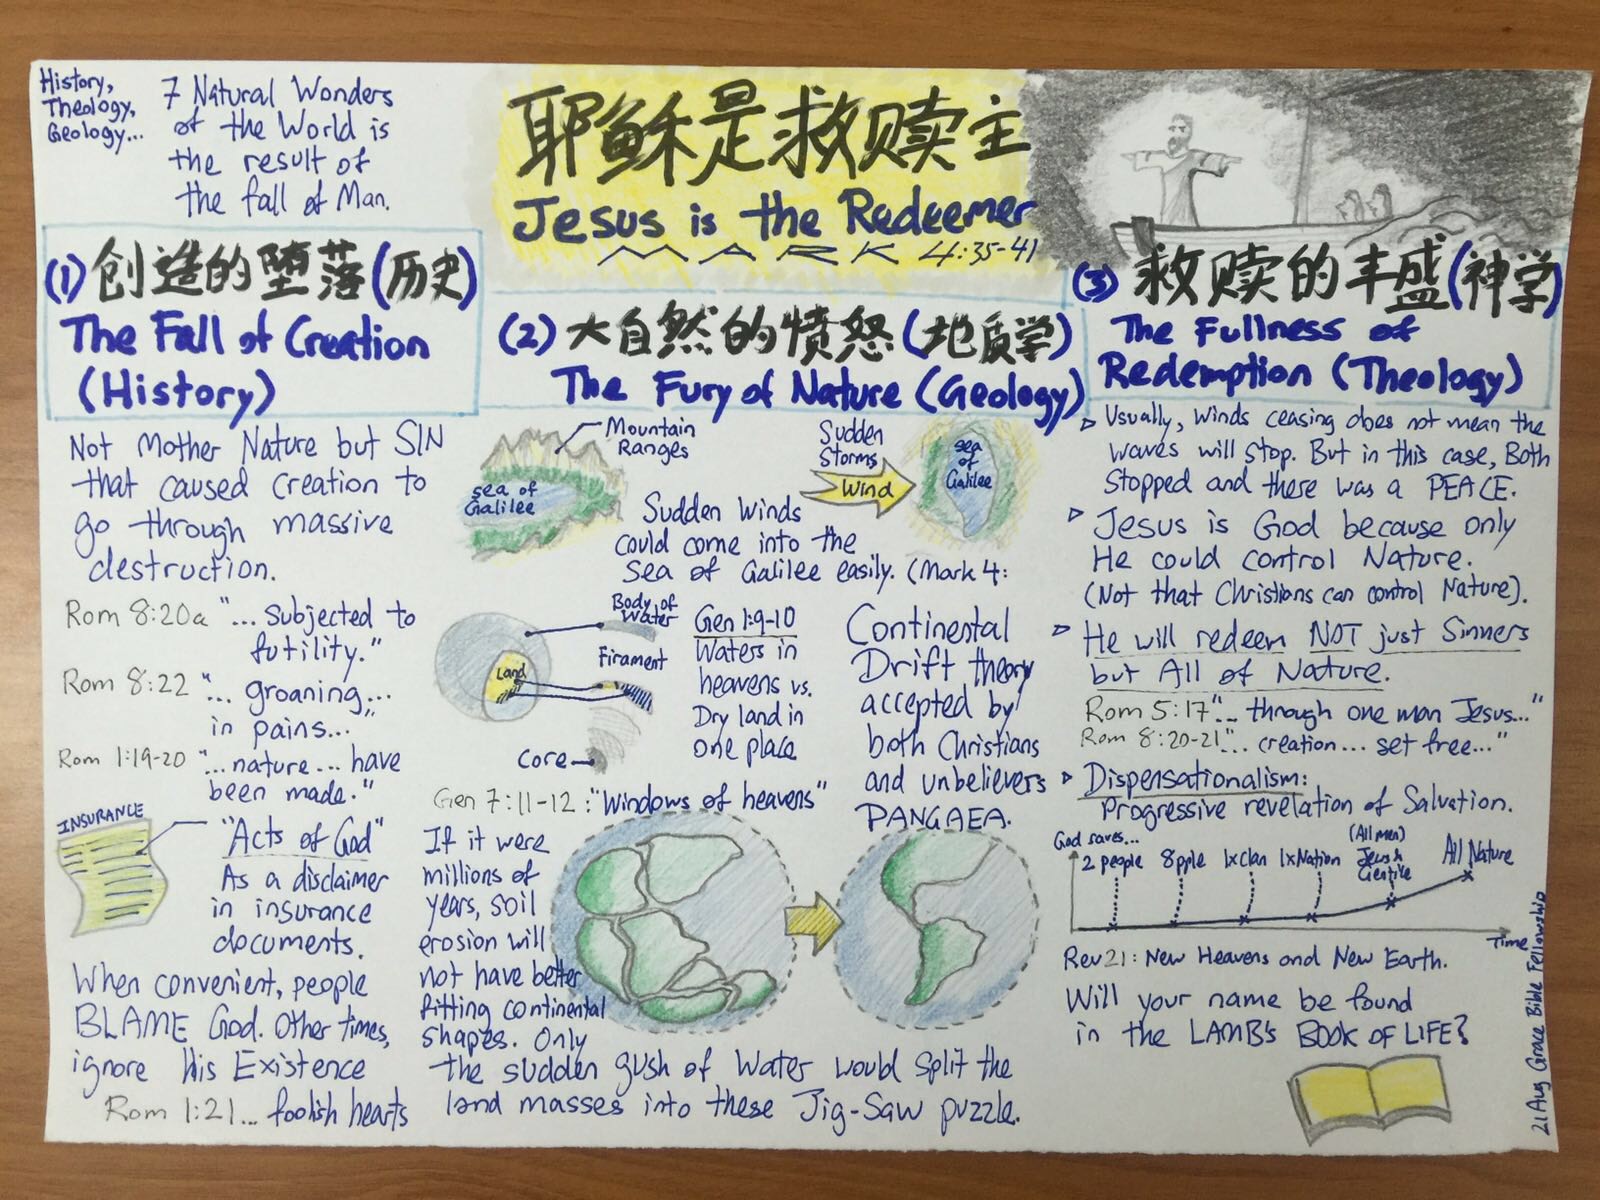 History,
Theology,
Geology...
7 Natural Wonders
of the World is
the result of
the fall of Man.
耶稣是救赎主
Jesus is the Redeemer
MARK 4:35-41
(1) 创造的堕落(历史)
The Fall of Creation
(History)
Not Mother Nature but SIN
that caused creation to
go through massive
destruction.
Rom 8:20a "... subjected to
futility."
Rom 8:22 "... groaning...
in pains..."
Rom 1:19-20 "...nature... have
been made."
INSURANCE
"Acts of God"
As a disclaimer
in insurance
documents.
When convenient, people
BLAME God. Other times,
ignore His Existence
Rom 1:21... foolish hearts
(2) 大自然的愤怒(地质学)
The Fury of Nature (Geology)
Mountain
Ranges
Sea of
Galilee
Sudden
Storms
Wind
Sea
of
Galilee
Sudden Winds
could come into the
Sea of Galilee easily. (Mark 4:
Body of
Water
Firament
Land
Core
Gen 1:9-10
Waters in
heavens vs.
Dry land in
one place
Gen 7:11-12: "Windows of heavens"
Continental
Drift theory
accepted by
both Christians
and unbelievers
PANGAEA.
If it were
millions of
years, soil
erosion will
not have better
fitting continental
shapes. Only
the sudden gush of Water would split the
land masses into these Jig-Saw puzzle.
(3) 救赎的丰盛(神学)
The Fullness of
Redemption (Theology)
▷ Usually, winds ceasing does not mean the
waves will stop. But in this case, Both
Stopped and there was a PEACE.
▷ Jesus is God because only
He could control Nature.
(Not that Christians can control Nature).
▷ He will redeem NOT just Sinners
but All of Nature.
Rom 5:17 "... through one man Jesus..."
Rom 8:20-21 "... creation... set free..."
▷ Dispensationalism:
Progressive revelation of Salvation.
God saves...
2 people
8 pple
1xClan
1xNation
(All men)
Jew &
Gentile
All Nature
Time
Rev 21: New Heavens and New Earth.
Will your name be found
in the LAMB's BOOK OF LIFE?
21 Aug Grace Bible Fellowship